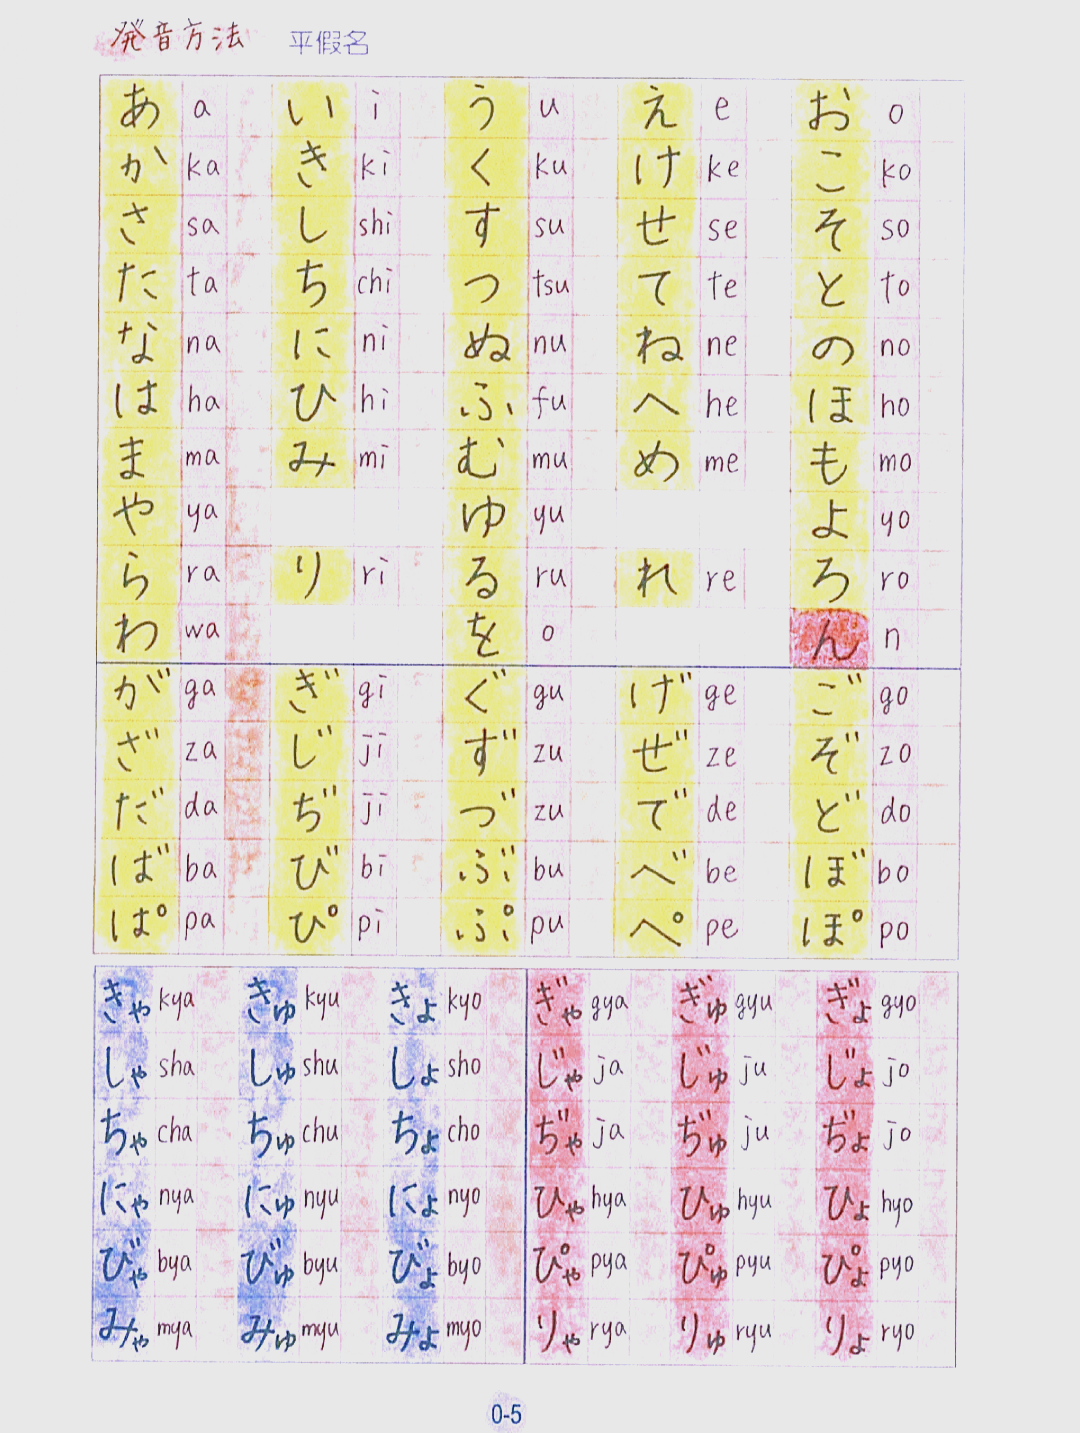 発音方法 平假名
あ a い i う u え e お o
か ka き ki く ku け ke こ ko
さ sa し shi す su せ se そ so
た ta ち chi つ tsu て te と to
な na に ni ぬ nu ね ne の no
は ha ひ hi ふ fu へ he ほ ho
ま ma み mi む mu め me も mo
や ya ゆ yu よ yo
ら ra り ri る ru れ re ろ ro
わ wa を o ん n
が ga ぎ gi ぐ gu げ ge ご go
ざ za じ ji ず zu ぜ ze ぞ zo
だ da ぢ ji づ zu で de ど do
ば ba び bi ぶ bu べ be ぼ bo
ぱ pa ぴ pi ぷ pu ぺ pe ぽ po
きゃ kya きゅ kyu きょ kyo ぎゃ gya ぎゅ gyu ぎょ gyo
しゃ sha しゅ shu しょ sho じゃ ja じゅ ju じょ jo
ちゃ cha ちゅ chu ちょ cho ぢゃ ja ぢゅ ju ぢょ jo
にゃ nya にゅ nyu にょ nyo ひゃ hya ひゅ hyu ひょ hyo
びゃ bya びゅ byu びょ byo ぴゃ pya ぴゅ pyu ぴょ pyo
みゃ mya みゅ myu みょ myo りゃ rya りゅ ryu りょ ryo
0-5